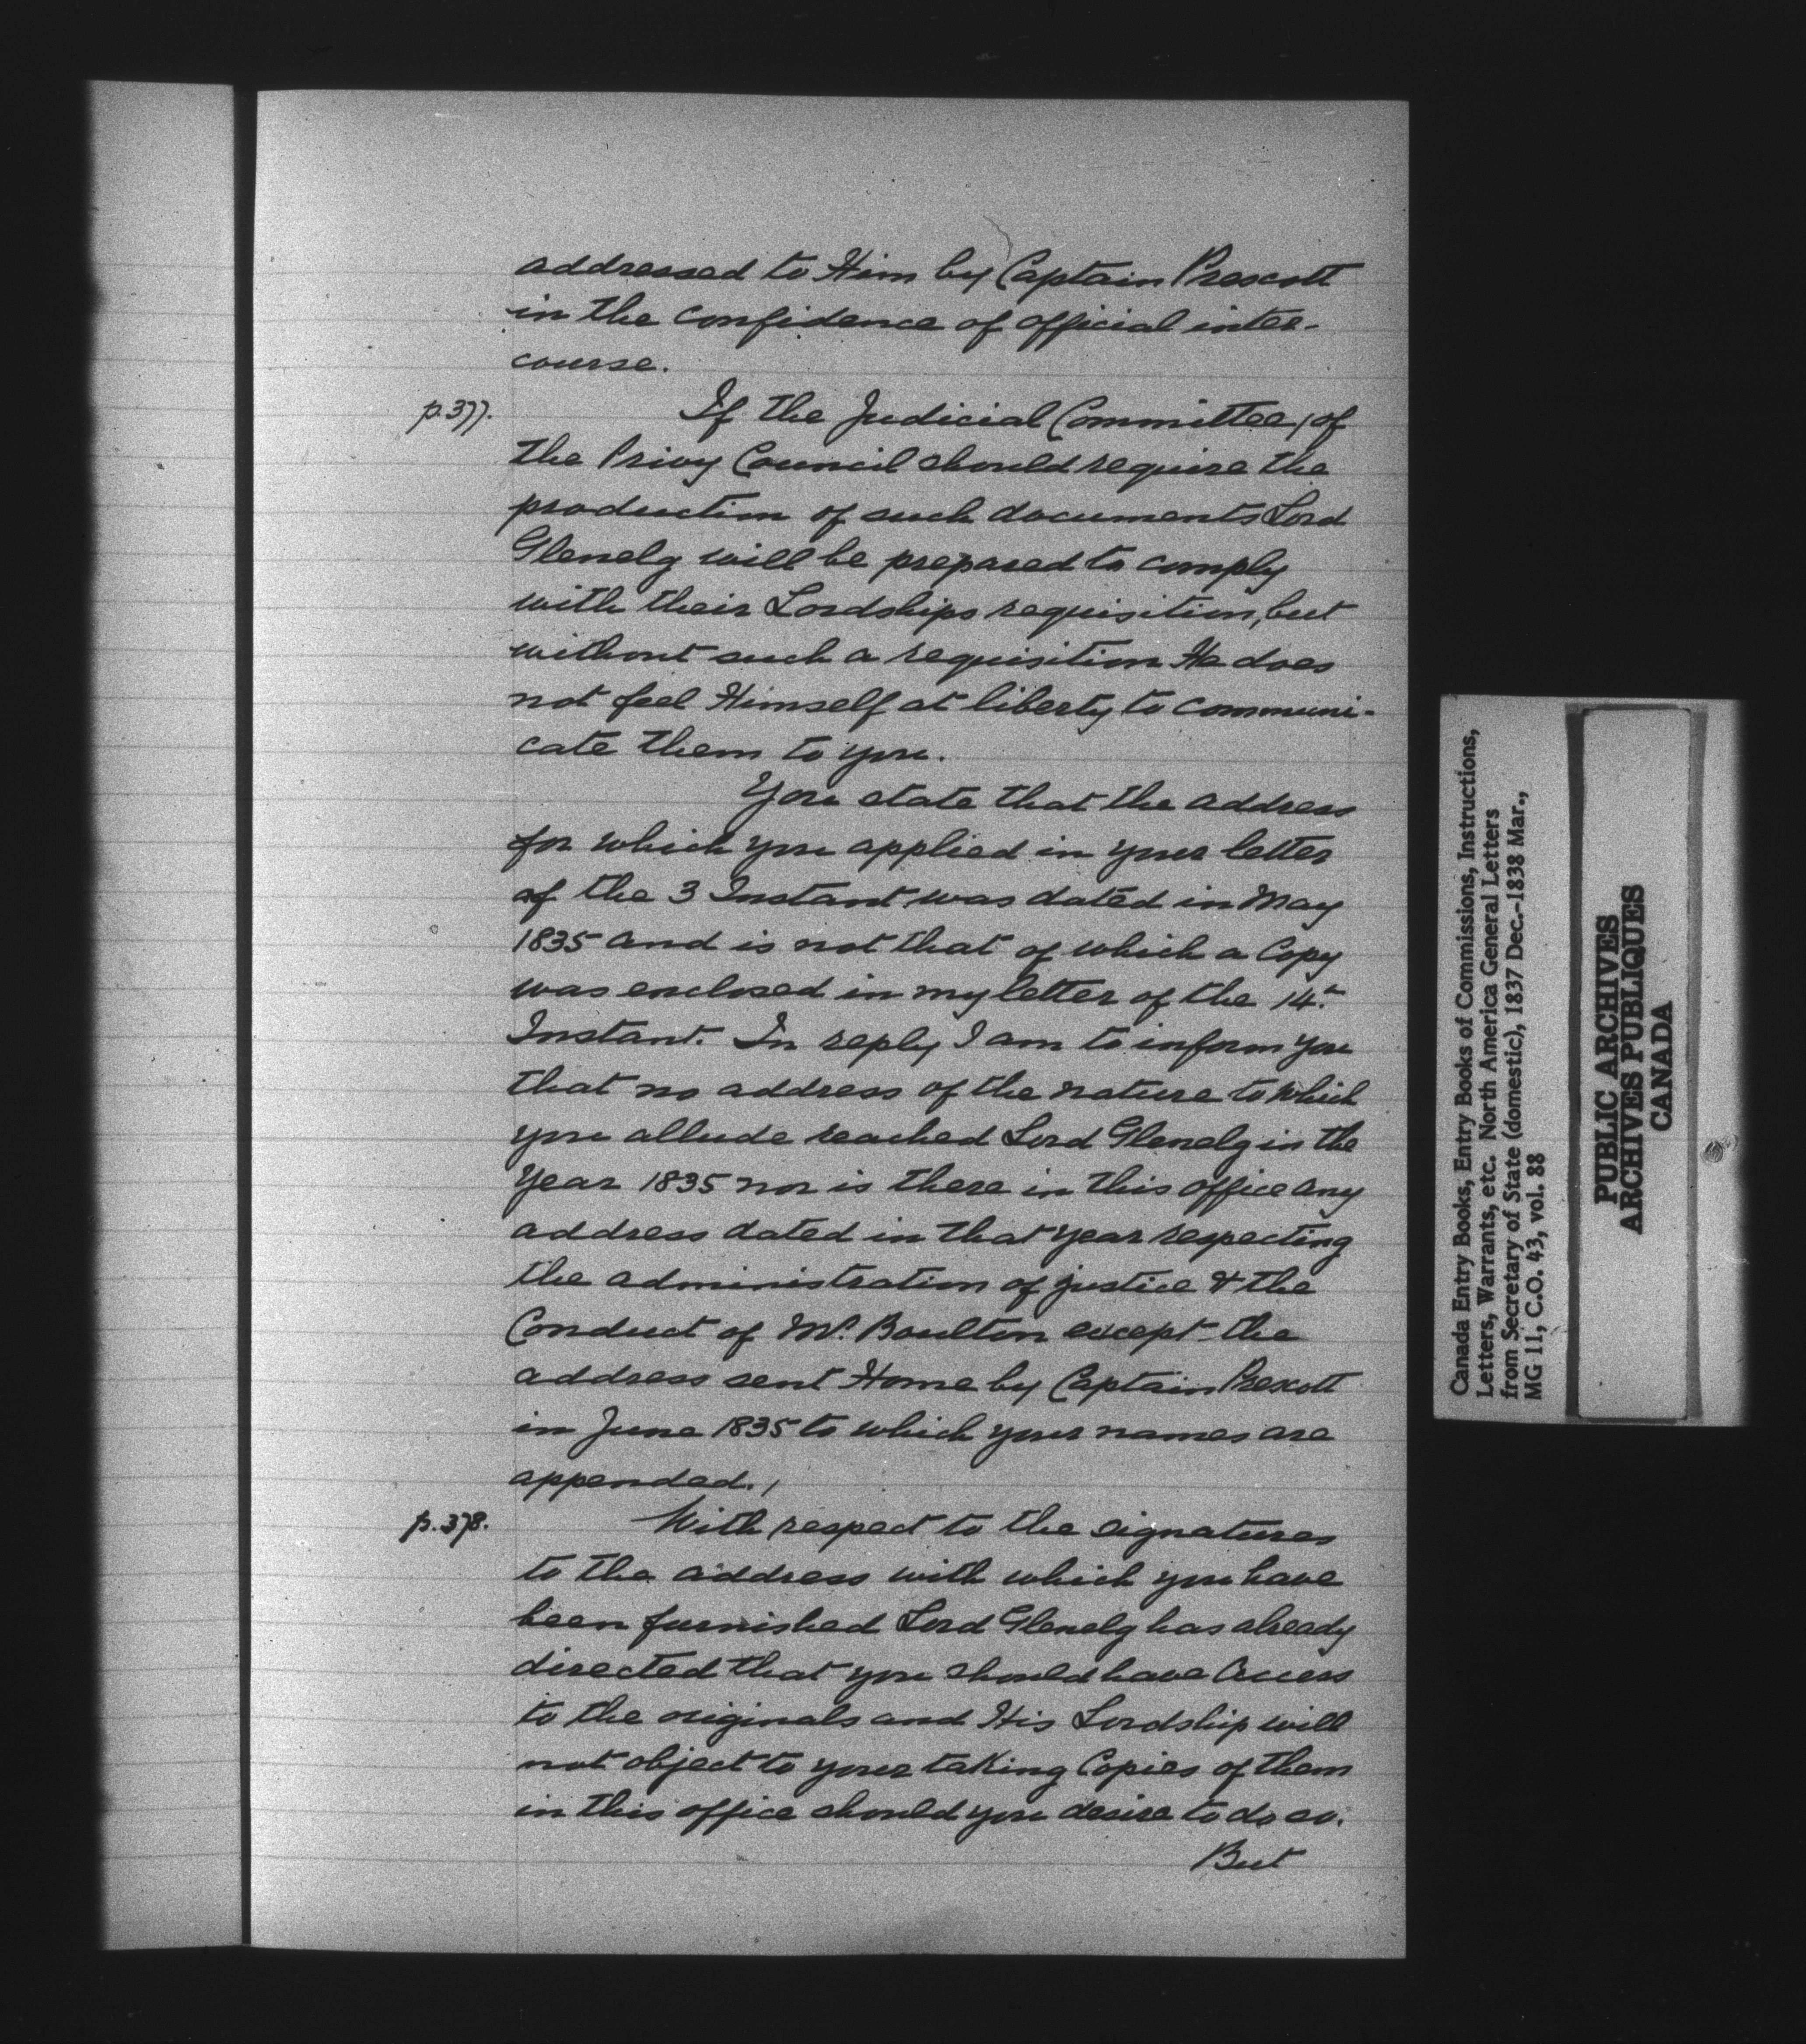 addressed to Him by Captain Prescott
in the confidence of official inter-
course.
p.377.
If the Judicial Committee / of
the Privy Council should require the
production of such documents Lord
Glenelg will be prepared to comply
with their Lordships requisition, but
without such a requisition He does
not feel Himself at liberty to communi-
cate them to you.
You state that the address
for which you applied in your letter
of the 3 Instant was dated in May
1835 and is not that of which a Copy
was enclosed in my letter of the 14.h
Instant. In reply I am to inform you
that no address of the nature to which
you allude reached Lord Glenelg in the
Year 1835 nor is there in this office any
address dated in that year respecting
the administration of justice & the
Conduct of Mr. Boulton except the
address sent Home by Captain Prescott
in June 1835 to which your names are
appended. /
p.378.
With respect to the signatures
to the address with which you have
been furnished Lord Glenelg has already
directed that you should have Access
to the originals and His Lordship will
not object to your taking Copies of them
in this office should you desire to do so.
But
Canada Entry Books, Entry Books of Commissions, Instructions,
Letters, Warrants, etc. North America General Letters
from Secretary of State (domestic), 1837 Dec.-1838 Mar.,
MG 11, C.O. 43, vol. 88
PUBLIC ARCHIVES
ARCHIVES PUBLIQUES
CANADA